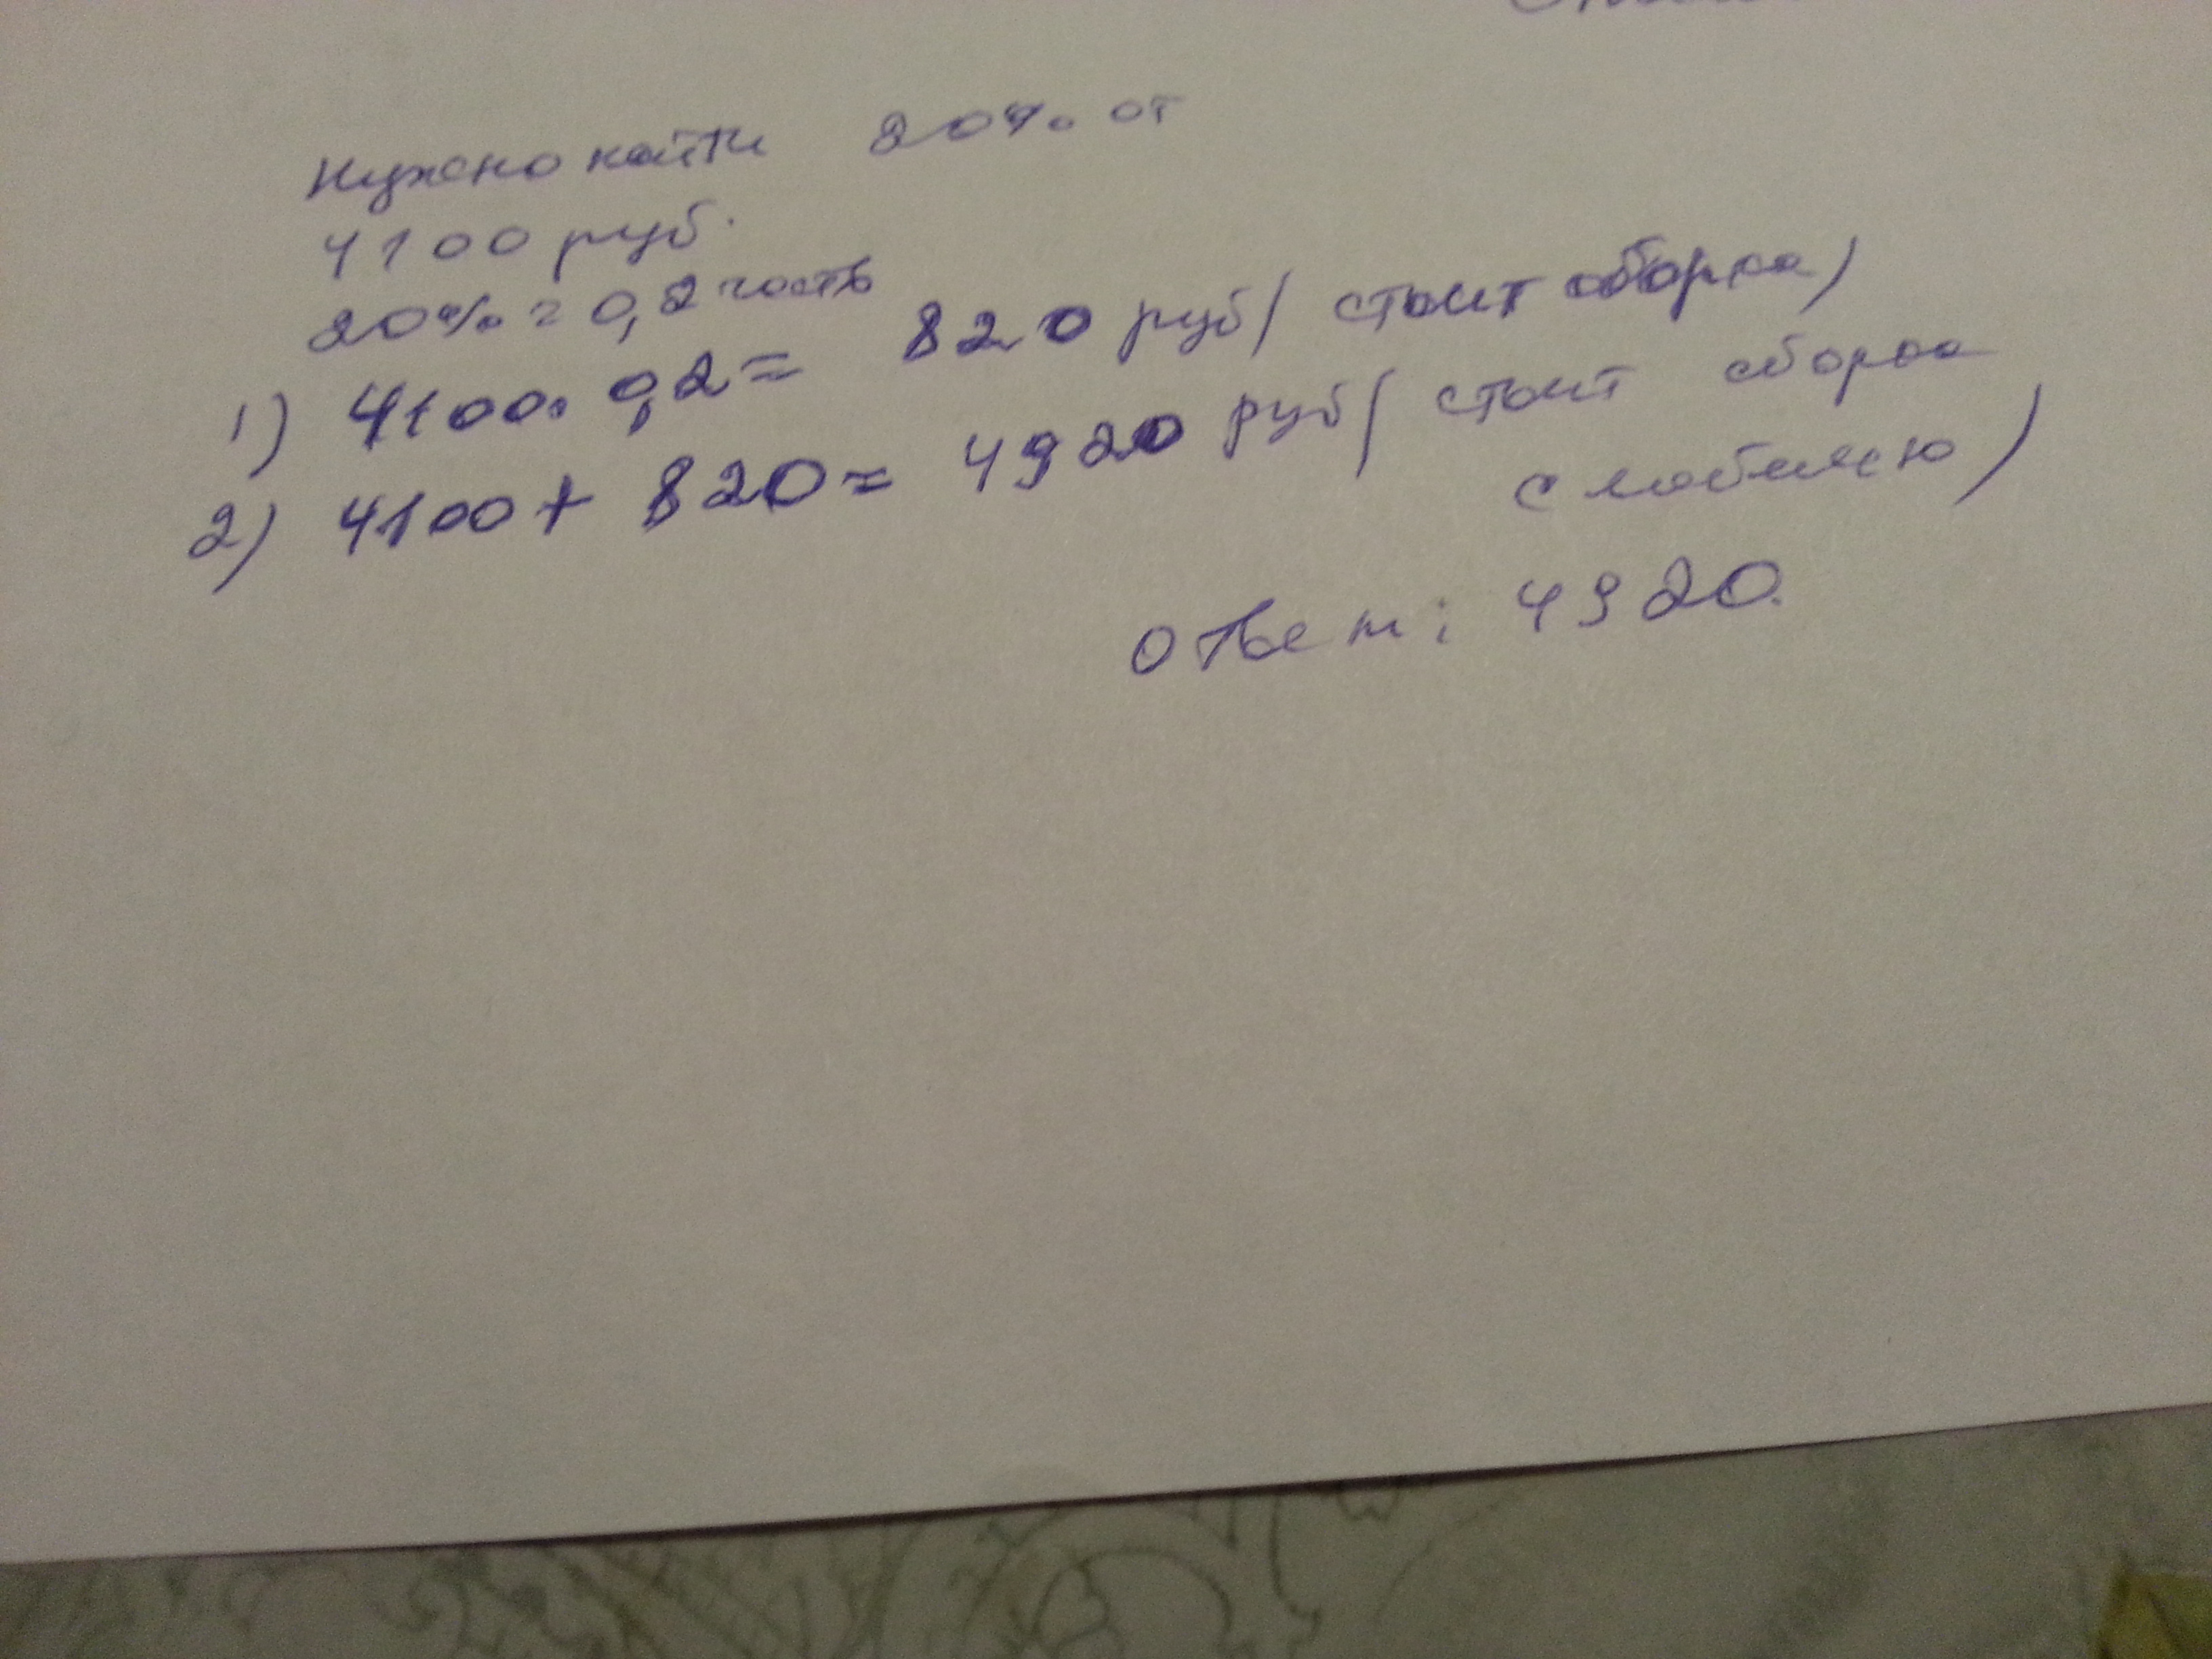 Нужно найти 20% от
4100 руб.
20% = 0,2 часть
1) 4100 · 0,2 = 820 руб ( стоит сборка)
2) 4100 + 820 = 4920 руб ( стоит сборка
с мебелью)
Ответ: 4920.